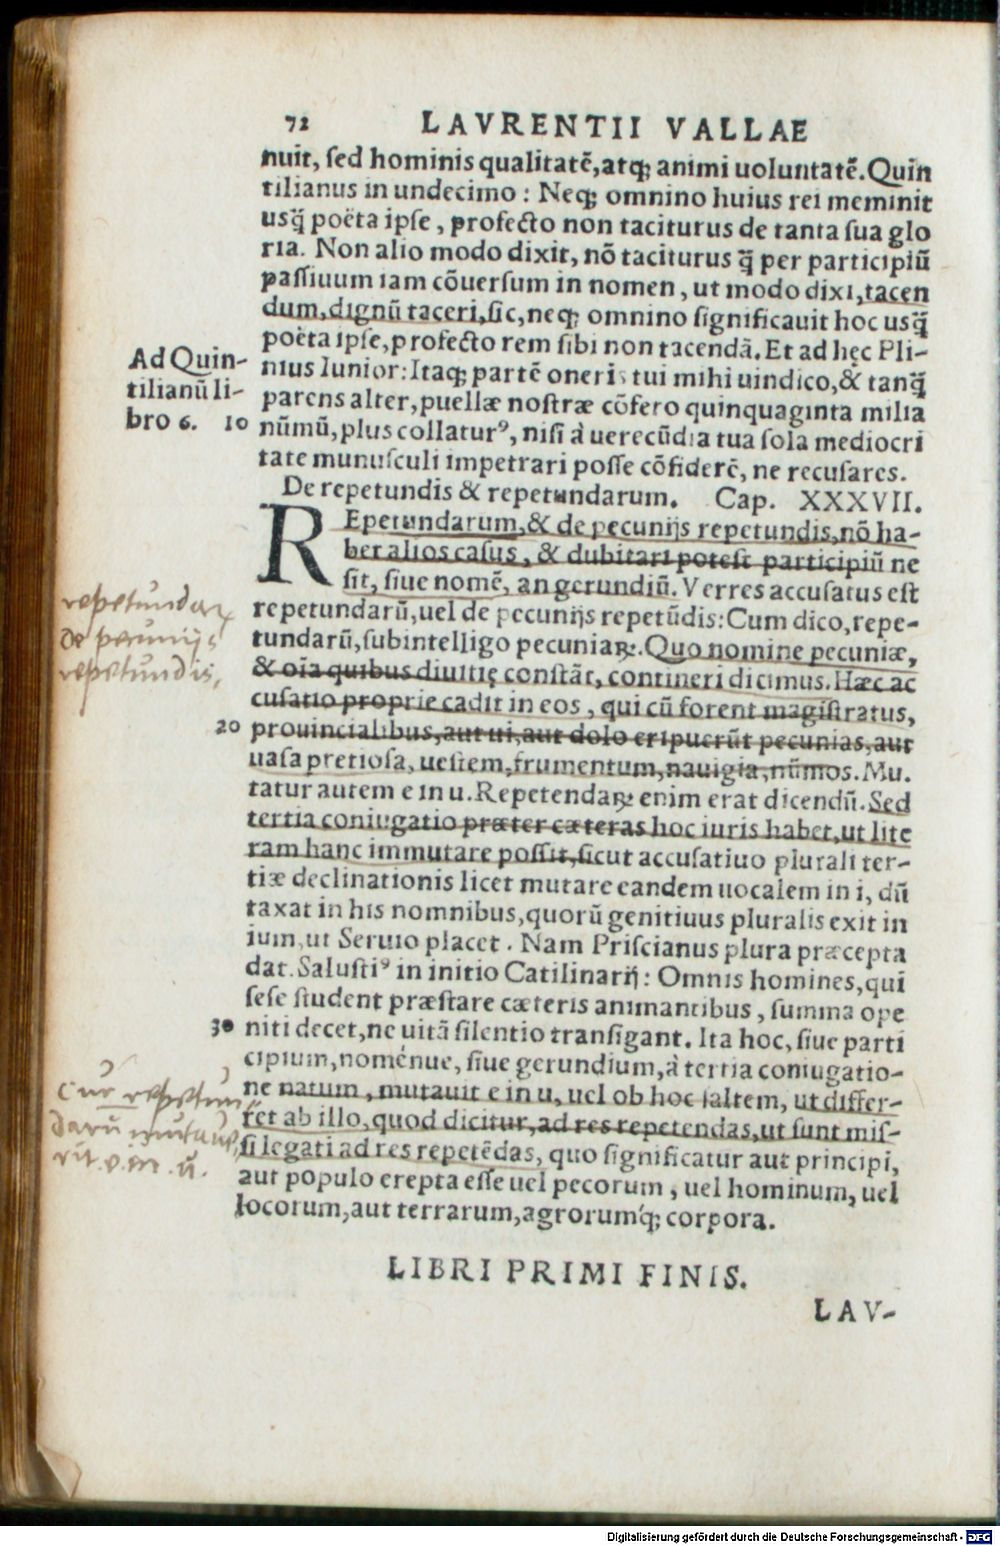 72 LAVRENTII VALLAE
nuit, sed hominis qualitatē, atq; animi uoluntatē. Quin
tilianus in undecimo: Neq; omnino huius rei meminit
usq̃ poëta ipse, profecto non taciturus de tanta sua glo
ria. Non alio modo dixit, nō taciturus q̃ per participiū
passiuum iam cōuersum in nomen, ut modo dixi, tacen
dum, dignū taceri, sic, neq; omnino significauit hoc usq̃
poëta ipse, profecto rem sibi non tacendā. Et ad hęc Pli-
nius Iunior: Itaq; partē oneris tui mihi uindico, & tanq̃
parens alter, puellæ nostræ cōfero quinquaginta milia
Ad Quin-
tilianū li-
bro 6.
10 nūmū, plus collaturꝰ, nisi à uerecūdia tua sola mediocri
tate munusculi impetrari posse cōfiderē, ne recusares.
De repetundis & repetundarum. Cap. XXXVII.
REpetundarum, & de pecunijs repetundis, nō ha-
bet alios casus, & dubitari potest participiū ne
sit, siue nomē, an gerundiū. Verres accusatus est
repetundarū, uel de pecunijs repetūdis: Cum dico, repe-
tundarū, subintelligo pecuniaꝝ. Quo nomine pecuniæ,
& oīa quibus diuitię constāt, contineri dicimus. Hæc ac
cusatio proprie cadit in eos, qui cū forent magistratus,
repetundaꝝ
de pecunijs
repetundis,
20 prouincialibus, aut ui, aut dolo eripuerūt pecunias, aut
uasa pretiosa, uestem, frumentum, nauigia, nūmos. Mu.
tatur autem e in u. Repetendaꝝ enim erat dicendū. Sed
tertia coniugatio præter cæteras hoc iuris habet, ut lite
ram hanc immutare possit, sicut accusatiuo plurali ter-
tiæ declinationis licet mutare eandem uocalem in i, dū
taxat in his nomnibus, quorū genitiuus pluralis exit in
ium, ut Seruio placet. Nam Priscianus plura præcepta
dat. Salustiꝰ in initio Catilinarij: Omnis homines, qui
sese student præstare cæteris animantibus, summa ope
30 niti decet, ne uitā silentio transigant. Ita hoc, siue parti
cipium, noménue, siue gerundium, à tertia coniugatio-
ne natum, mutauit e in u, uel ob hoc saltem, ut differ-
ret ab illo, quod dicitur, ad res repetendas, ut sunt mis-
si legati ad res repetēdas, quo significatur aut principi,
aut populo erepta esse uel pecorum, uel hominum, uel
locorum, aut terrarum, agrorumq́; corpora.
cur repetun
darū mutaue
rit e in ū.
LIBRI PRIMI FINIS.
LAV-
Digitalisierung gefördert durch die Deutsche Forschungsgemeinschaft - DFG